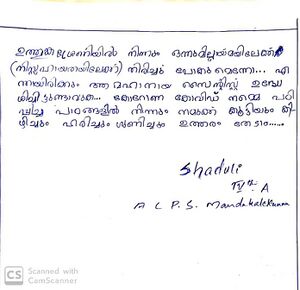 ഉത്തുംഗശ്രേണിയിൽ നിന്നും ഒന്നുമില്ലായ്മയിലേക്ക്
(നിസ്സഹായതയിലേക്ക്) തിരിച്ചു പോകുമെന്നോ... എ
ന്തായിരിക്കും ആ മഹാനായ സൈന്റിസ്റ്റ് ഉദ്ദേ
ശിച്ചിട്ടുണ്ടാവുക... കൊറോണ കോവിഡ് നമ്മെ പഠി
പ്പിച്ച പാഠങ്ങളിൽ നിന്നും നമുക്ക് കൂട്ടിയും കി
ഴിച്ചും ഹരിച്ചും ഗുണിച്ചും ഉത്തരം തേടാം.....
Shaduli
IV th A
A L P S Mandakakunnu
CS Scanned with
CamScanner